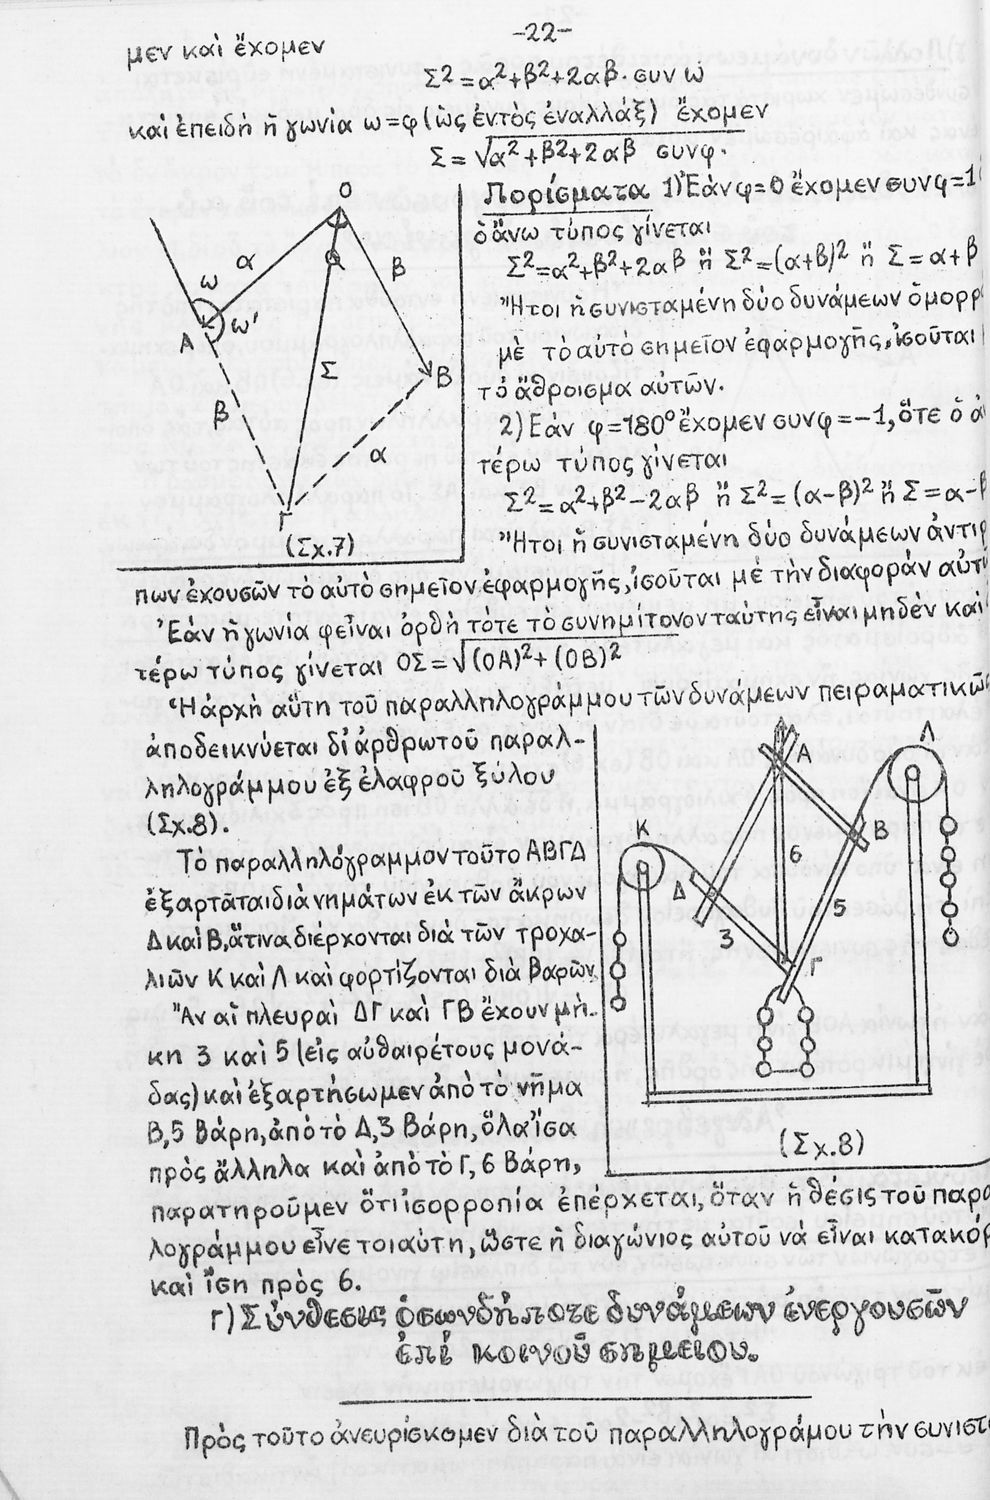 -22-
μεν καὶ ἔχομεν
Σ²=α²+β²+2αβ·συν ω
καὶ ἐπειδὴ ἡ γωνία ω=φ (ὡς ἐντὸς ἐναλλάξ) ἔχομεν
Σ=√α²+β²+2αβ συνφ.
Πορίσματα 1) Ἐὰν φ=0 ἔχομεν συνφ=1
ὁ ἄνω τύπος γίνεται
Σ²=α²+β²+2αβ ἢ Σ²=(α+β)² ἢ Σ=α+β
Ἤτοι ἡ συνισταμένη δύο δυνάμεων ὁμορρ
μὲ τὸ αὐτὸ σημεῖον ἐφαρμογῆς, ἰσοῦται
τὸ ἄθροισμα αὐτῶν.
2) Ἐὰν φ=180° ἔχομεν συνφ=-1, ὅτε ὁ ἀ
τέρω τύπος γίνεται
Σ²=α²+β²-2αβ ἢ Σ²=(α-β)² ἢ Σ=α-β
Ἤτοι ἡ συνισταμένη δύο δυνάμεων ἀντιρ
Ο
α
β
ω
Α
ω'
Σ
Β
β
α
Γ
(Σχ.7)
πων ἐχουσῶν τὸ αὐτὸ σημεῖον ἐφαρμογῆς, ἰσοῦται μὲ τὴν διαφορὰν αὐτ
Ἐὰν ἡ γωνία φ εἶναι ὀρθὴ τότε τὸ συνημίτονον ταύτης εἶναι μηδὲν καὶ
τέρω τύπος γίνεται ΟΣ=√(ΟΑ)²+(ΟΒ)²
Ἡ ἀρχὴ αὕτη τοῦ παραλληλογράμμου τῶν δυνάμεων πειραματικῶς
ἀποδεικνύεται δι' ἀρθρωτοῦ παραλ-
ληλογράμμου ἐξ ἐλαφροῦ ξύλου
(Σχ.8).
Τὸ παραλληλόγραμμον τοῦτο ΑΒΓΔ
ἐξαρτᾶται διὰ νημάτων ἐκ τῶν ἄκρων
Δ καὶ Β, ἅτινα διέρχονται διὰ τῶν τροχα-
λιῶν Κ καὶ Λ καὶ φορτίζονται διὰ βαρῶν.
Ἂν αἱ πλευραὶ ΔΓ καὶ ΓΒ ἔχουν μή-
κη 3 καὶ 5 (εἰς αὐθαιρέτους μονά-
δας) καὶ ἐξαρτήσωμεν ἀπὸ τὸ νῆμα
Β, 5 βάρη, ἀπὸ τὸ Δ, 3 βάρη, ὅλα ἴσα
πρὸς ἄλληλα καὶ ἀπὸ τὸ Γ, 6 βάρη,
Α
Λ
Κ
Β
6
Δ
5
3
Γ
(Σχ.8)
παρατηροῦμεν ὅτι ἰσορροπία ἐπέρχεται, ὅταν ἡ θέσις τοῦ παρα
λογράμμου εἶνε τοιαύτη, ὥστε ἡ διαγώνιος αὐτοῦ νὰ εἶναι κατακόρ
καὶ ἴση πρὸς 6.
Γ) Σύνθεσις ὁσωνδήποτε δυνάμεων ἐνεργουσῶν
ἐπὶ κοινοῦ σημείου.
Πρὸς τοῦτο ἀνευρίσκομεν διὰ τοῦ παραλληλογράμου τὴν συνιστ